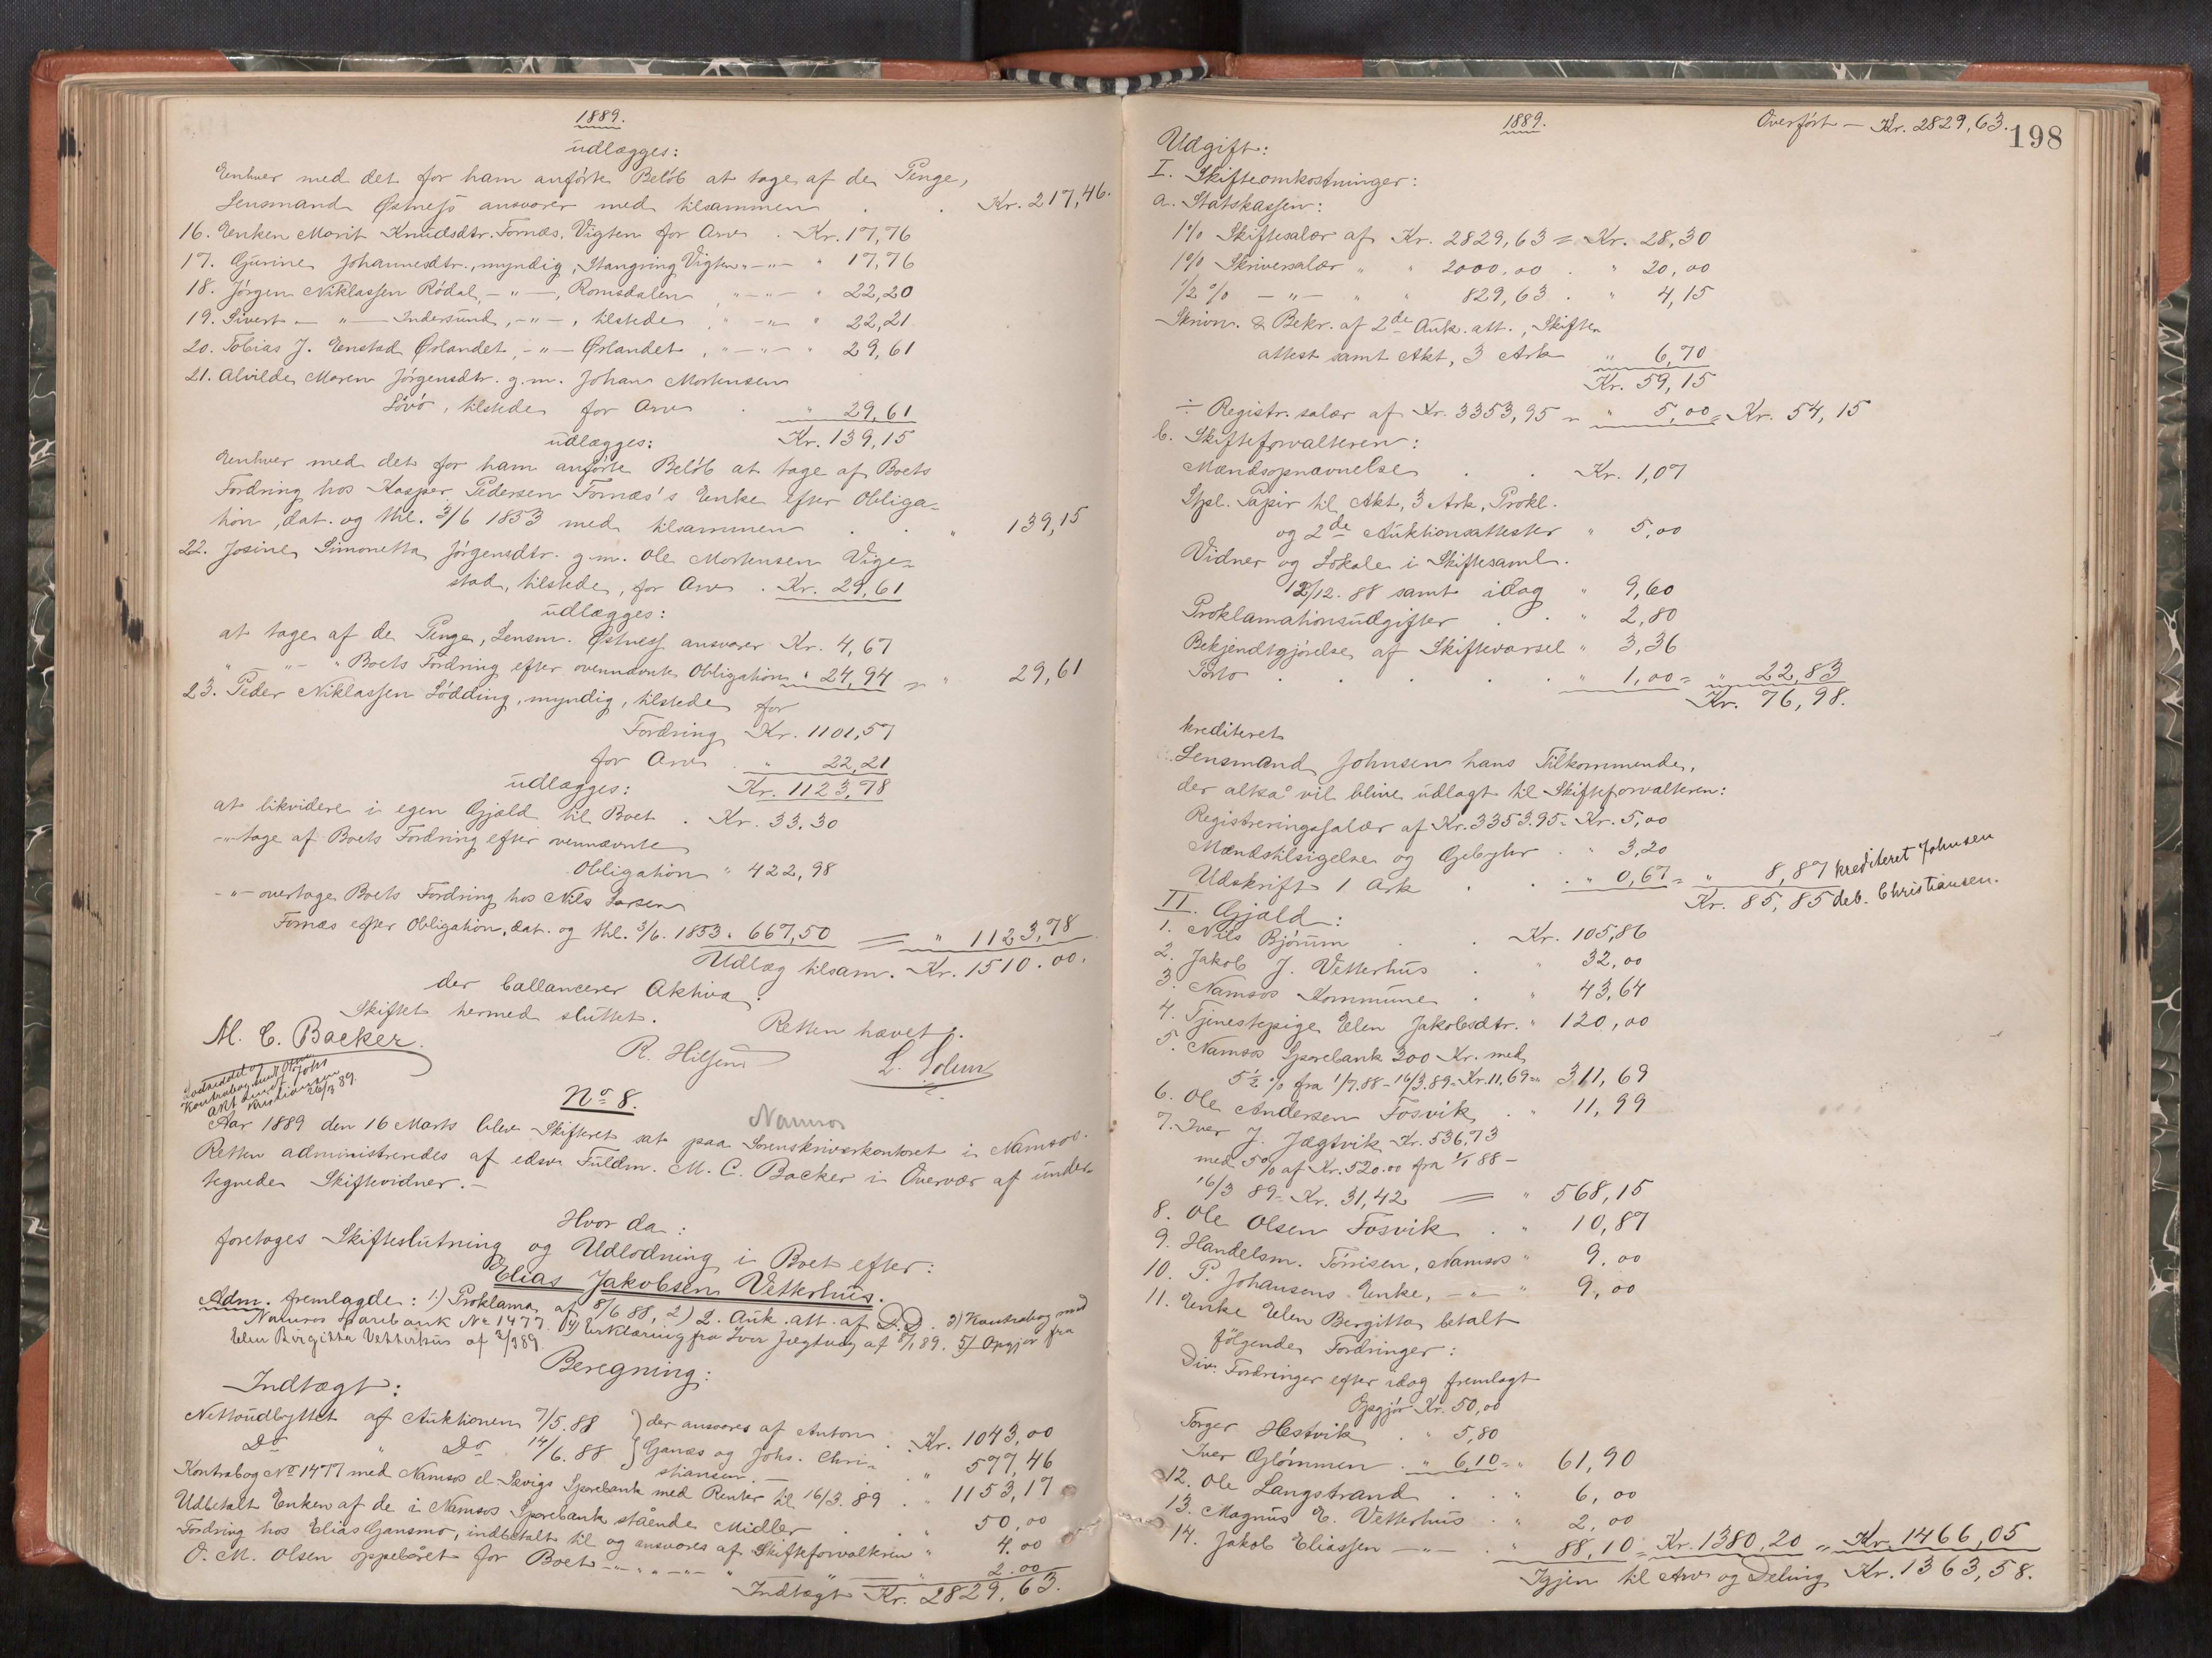 1889.
udlægges:
Enhver med det for ham anførte Beløb at tage af de Penge,
Lensmand Østness ansvarer med tilsammen . . Kr. 217,46.
16. Enken Marit Knudsdtr. Fornæs, Vigten for Arv . Kr. 17,76
17. Gurine Johannesdtr., myndig, Stangring Vigten -"- " 17,76
18. Jørgen Niklassen Rödal, -"-, Romsdalen, -"- " 22,20
19. Sivert -"- Indersund, -"-, tilstede, -"- " 22,21
20. Tobias J. Enstad Ørlandet, -"- Ørlandet, -"- " 29,61
21. Alvilde Maren Jörgensdtr. g.m. Johan Mortensen
Lövö, tilstede for Arv . " 29,61
udlægges: Kr. 139,15
Enhver med det for ham anførte Beløb at tage af Boets
Fordring hos Kasper Pedersen Fornæs's Enke efter Obliga-
tion, dat. og thl. 3/6 1853 med tilsammen . . " 139,15
22. Josine Simonetta Jörgensdtr. g.m. Ole Mortensen Vige-
stad, tilstede, for Arv . Kr. 29,61
udlægges:
at tage af de Penge, Lensm. Østness ansvarer Kr. 4,67
" -"- " Boets Fordring efter ovennævnte Obligation " 24,94 = " 29,61
23. Peder Niklassen Lödding, myndig, tilstede for
Fordring Kr. 1101,57
for Arv . " 22,21
udlægges: Kr. 1123,78
at likvidere i egen Gjæld til Boet . Kr. 33,30
-"- tage af Boets Fordring efter ovennævnte
Obligation " 422,98
-"- overtage Boets Fordring hos Nils Larsen
Fornæs efter Obligation, dat. og thl. 3/6. 1853 " 667,50 = " 1123,78
Udlæg tilsam. Kr. 1510.00.
der ballancerer Aktiva.
Skiftet hermed sluttet.
Retten hævet.
M. C. Backer.
R. Hilsen
L. Solum
Kontrabog
Akt
Kristiansen 26/3 89.
No 8.
Namsos
Aar 1889 den 16 Marts blev Skifteret sat paa Sorenskriverkontoret i Namsos.
Retten administreredes af edsv. Fuldm. M. C. Backer i Overvær af under-
tegnede Skiftevidner. -
Hvor da:
foretoges Skifteslutning og Udlodning i Boet efter:
Elias Jakobsen Vetterhus.
Adm. fremlagde: 1) Proklama af 8/6 88, 2) 2. Auk. att. af D.D. 3) Kontrabog med
Namsos Sparebank No 1477 4) Erklæring fra Iver Jægtvig af 8/1 89. 5) Opgjør fra
Elen Birgitta Vetterhus af 2/3 89.
Beregning:
Indtægt:
Nettoudbyttet af Auktionen 7/5. 88 } der ansvares af Anton . . Kr. 1043,00
Do " Do 14/6. 88 } Ganæs og Johs. Chri-
stiansen. - . " 577,46
Kontrabog No 1477 med Namsos el. Sævigs Sparebank med Renter til 16/3. 89 . " 1153,17
Udbetalt Enken af de i Namsos Sparebank stående Midler . . " 50,00
Fordring hos Elias Gansmo, indbetalt til og ansvares af Skifteforvalteren " 4.00
O. M. Olsen oppebåret for Boet -"- " -"- " " 2.00
Indtægt Kr. 2829,63.
1889.
Overført - Kr. 2829,63.
198
Udgift:
I. Skifteomkostninger:
a. Statskassen:
1% Skiftesalær af Kr. 2829,63 = Kr. 28,30
1% Skriversalær " " 2000,00 . " 20,00
1/2 % -"- " " 829,63 . " 4,15
Skrivn. & Bekr. af 2de Auk. att., Skifte
attest samt Akt, 3 Ark " 6,70
Kr. 59,15
÷ Registr. salær af Kr. 3353,95 = " 5,00 = Kr. 54,15
b. Skifteforvalteren:
Mændsopnævnelse . . Kr. 1,07
Stpl. Papir til Akt, 3 Ark, Prokl.
og 2de Auktionsattester " 5,00
Vidner og Lokale i Skiftesaml.
12/12. 88 samt idag " 9,60
Proklamationsudgifter . . " 2,80
Bekjendtgjørelse af Skiftevarsel " 3,36
Porto . . . . . " 1,00 = " 22,83
Kr. 76,98.
krediteret
Lensmand Johnsen hans Tilkommende,
der altså vil blive udlagt til Skifteforvalteren:
Registreringssalær af Kr. 3353.95 = Kr. 5,00
Mændstilsigelse og Gebyhr . " 3,20
Udskrift 1 Ark . . " 0,67 = " 8,87 krediteret Johnsen
Kr. 85,85 deb. Christiansen.
II. Gjæld:
1. Nils Bjørum . . Kr. 105,86
2. Jakob J. Vetterhus . " 32,00
3. Namsos Kommune . " 43,64
4. Tjenestepige Elen Jakobsdtr. " 120,00
5. Namsos Sparebank 300 Kr. med
5 1/2 % fra 1/7.88 - 16/3.89 = Kr. 11,69 = " 311,69
6. Ole Andersen Fosvik . " 11,99
7. Iver J. Jægtvik Kr. 536,73
med 5% af Kr. 520.00 fra 1/1 88 -
16/3 89 = Kr. 31,42 = " 568,15
8. Ole Olsen Fosvik . " 10,87
9. Handelsm. Tönisen, Namsos " 9,00
10. P. Johansens Enke, -"- " 9,00
11. Enke Elen Bergitta betalt
følgende Fordringer:
Div. Fordringer efter idag fremlagt
Opgjör Kr. 50,00
Torger Hestvik . " 5,80
Iver Glömmen . " 6,10 = " 61,90
12. Ole Langstrand . . " 6,00
13. Magnus E. Vetterhus . " 2,00
14. Jakob Eliassen -"- . " 88,10 = Kr. 1380,20 = Kr. 1466,05
Igjen til Arv og Deling Kr. 1363,58.